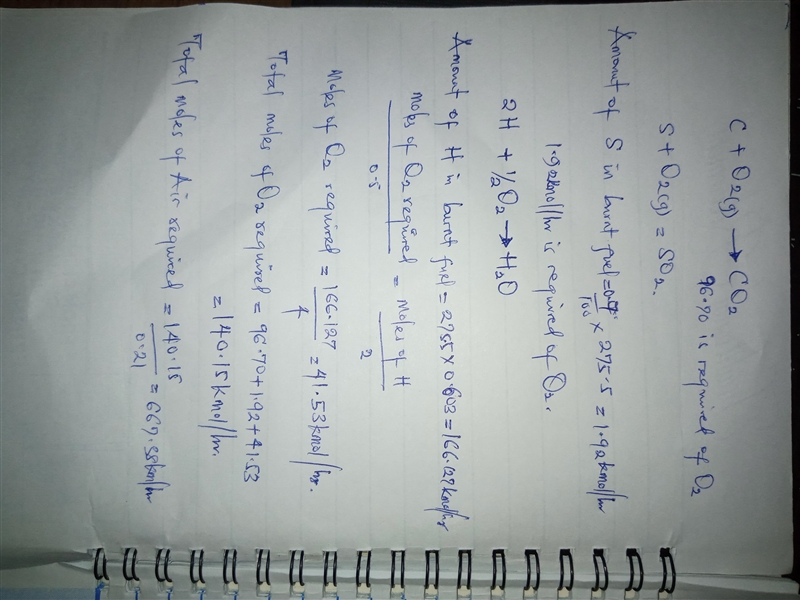 C + O2(g) → CO2
96.70 is required of O2
S + O2(g) = SO2.
Amount of S in burnt fuel = /100 × 275.5 = 1.92kmol/hr
1.92kmol/hr is required of O2.
2H + 1/2O2 → H2O
Amount of H in burnt fuel = 2755 × 0.603 = 166.127kmol/hr
moles of O2 required / 0.5 = Moles of H / 2
Moles of O2 required = 166.127 / 4 = 41.53kmol/hr.
Total moles of O2 required = 96.70 + 1.92 + 41.53
= 140.15kmol/hr.
Total moles of Air required = 140.15 / 0.21 = 667.38km/hr